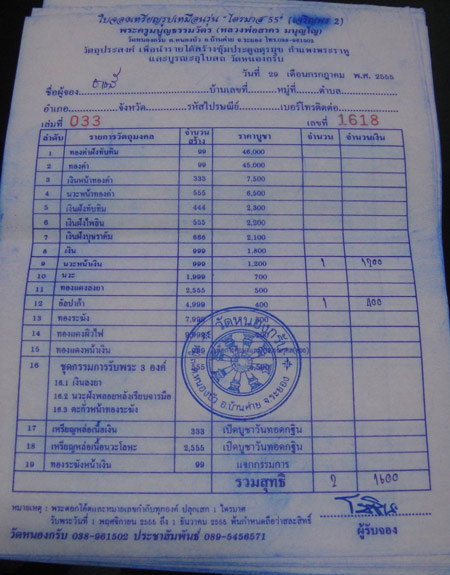 ใบจองเหรียญรูปเหมือนรุ่น "ไตรมาส 55" (เจริญพร 2)
พระครูมนูญธรรมวัตร (หลวงพ่อสาคร มนุญโญ)
วัดหนองกรับ ต.หนองบัว อ.บ้านค่าย จ.ระยอง โทร.038-961502
วัตถุประสงค์ เพื่อนำรายได้สร้างซุ้มประตูจตุรมุข กำแพงพระราหู
และบูรณะอุโบสถ วัดหนองกรับ
วันที่ 29 เดือนกรกฎาคม พ.ศ. 2555
ชื่อผู้จอง บ้านเลขที่ หมู่ที่ ตำบล
อำเภอ จังหวัด รหัสไปรษณีย์ เบอร์โทรติดต่อ
เล่มที่ 033 เลขที่ 1618
ลำดับ รายการวัตถุมงคล จำนวนสร้าง ราคาบูชา จำนวน จำนวนเงิน
1 ทองคำฝังทับทิม 99 46,000
2 ทองคำ 99 45,000
3 เงินหน้าทองคำ 333 7,500
4 นวะหน้าทองคำ 555 6,500
5 เงินฝังทับทิม 444 2,300
6 เงินฝังไพลิน 555 2,200
7 เงินฝังบุษราคัม 666 2,100
8 เงิน 999 1,800
9 นวะหน้าเงิน 999 1,200 1 1200
10 นวะ 1,999 700
11 ทองแดงลงยา 2,555 500
12 อัลปาก้า 4,999 400 1 400
13 ทองระฆัง 7,999
14 ทองแดงผิวไฟ
15 ทองแดงหน้าเงิน
16 ชุดกรรมการรับพระ 3 องค์
16.1 เงินลงยา
16.2 นวะฝังพลอยหลังเรียบจารมือ
16.3 ตะกั่วหน้าทองระฆัง
วัดหนองกรับ
ต.หนองบัว อ.บ้านค่าย จ.ระยอง
17 เหรียญหล่อเนื้อเงิน 333 เปิดบูชาวันทอดกฐิน
18 เหรียญหล่อเนื้อนวะโลหะ 2,555 เปิดบูชาวันทอดกฐิน
19 ทองระฆังหน้าเงิน 99 แจกกรรมการ
รวมสุทธิ 2 1600
หมายเหตุ : พระตอกโค๊ตและหมายเลขกำกับทุกองค์ ปลุกเสก 1 ไตรมาส
รับพระวันที่ 1 พฤศจิกายน 2555 ถึง 1 ธันวาคม 2555 พ้นกำหนดถือว่าสละสิทธิ์
ผู้รับจอง
วัดหนองกรับ 038-961502 ประชาสัมพันธ์ 089-5456571